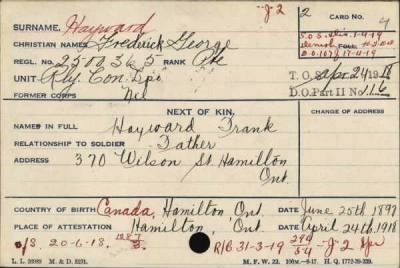 J 2
2
CARD NO.
SURNAME. Hayward
CHRISTIAN NAMES Frederick George
S.O.S. Dis. 1-4-19
Demob.
D.O. 107 17-4-19
REGL. NO. 2500365 RANK Pte
UNIT Rly. Con. Dpt
T. O. S. Apr 24 1918
FORMER CORPS Nil
D.O. Part II No. 116
NEXT OF KIN.
CHANGE OF ADDRESS
NAMES IN FULL Hayward Frank
RELATIONSHIP TO SOLDIER Father
ADDRESS 370 Wilson St. Hamilton
Ont.
COUNTRY OF BIRTH Canada, Hamilton Ont. DATE June 25th 1897
PLACE OF ATTESTATION Hamilton, Ont. DATE April 24th 1918
O/S. 20-6-18.
R/B 31-3-19
J-2
M. & D. M. F. W. 22.